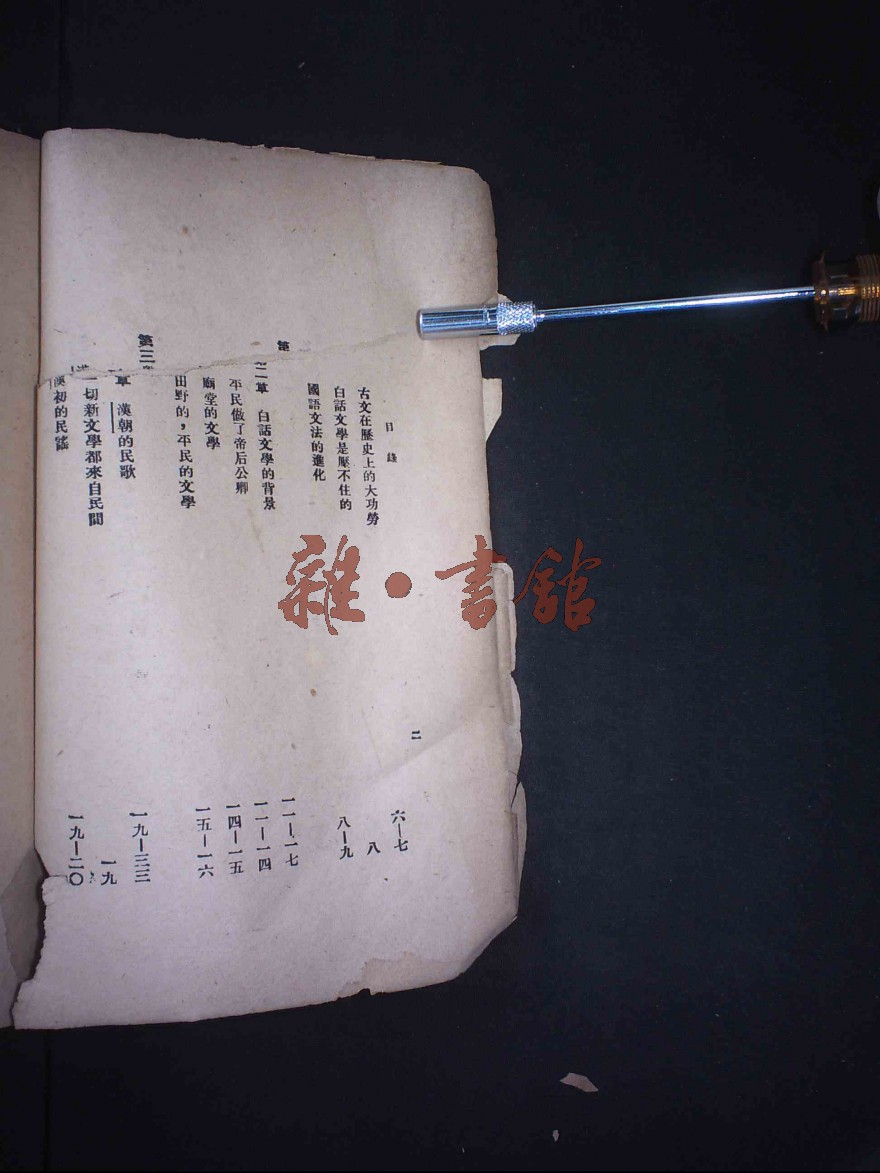 目錄
二
古文在歷史上的大功勞 六—七
白話文學是壓不住的 八
國語文法的進化 八—九
第二章 白話文學的背景 一一—一七
平民做了帝后公卿 一一—一四
廟堂的文學 一四—一五
田野的，平民的文學 一五—一六
第三章 漢朝的民歌 一九—三三
一切新文學都來自民間 一九
漢初的民謠 一九—二〇
雜·書館